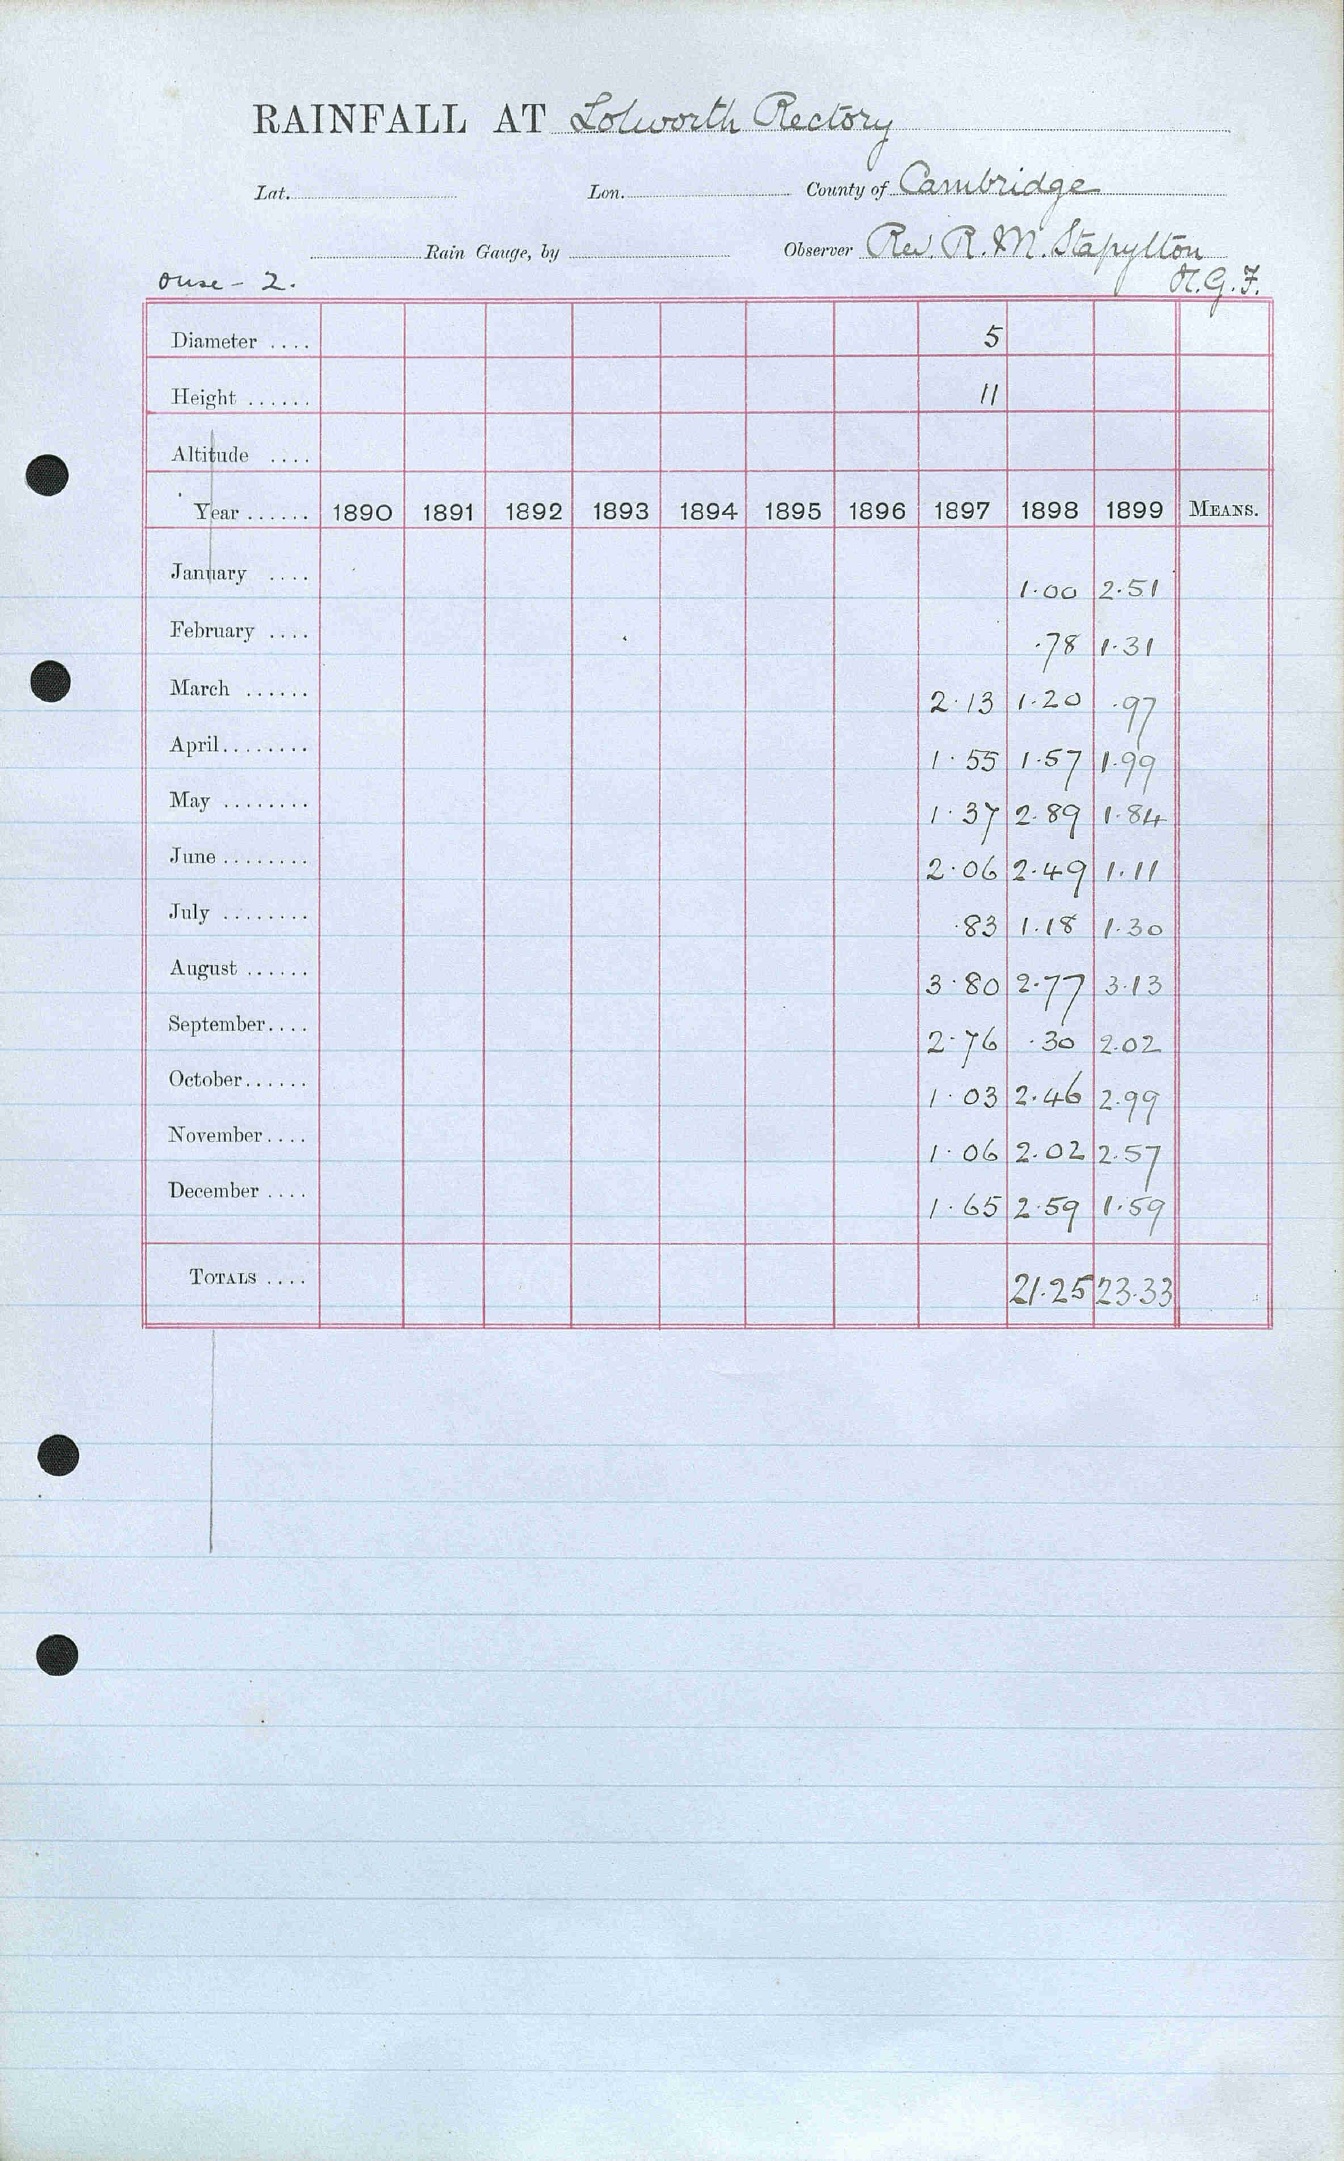 RAINFALL AT Lolworth Rectory
Lat. Lon. County of Cambridge
Rain Gauge, by Observer Rev. R. M. Stapylton
Ouse - 2. H.G.F.
Diameter .... 5
Height ...... 11
Altitude ....
Year ...... 1890 1891 1892 1893 1894 1895 1896 1897 1898 1899 MEANS.
January .... 1.00 2.51
February .... .78 1.31
March ...... 2.13 1.20 .97
April........ 1.55 1.57 1.99
May ........ 1.37 2.89 1.84
June ........ 2.06 2.49 1.11
July ........ .83 1.18 1.30
August ...... 3.80 2.77 3.13
September.... 2.76 .30 2.02
October...... 1.03 2.46 2.99
November.... 1.06 2.02 2.57
December .... 1.65 2.59 1.59
TOTALS .... 21.25 23.33